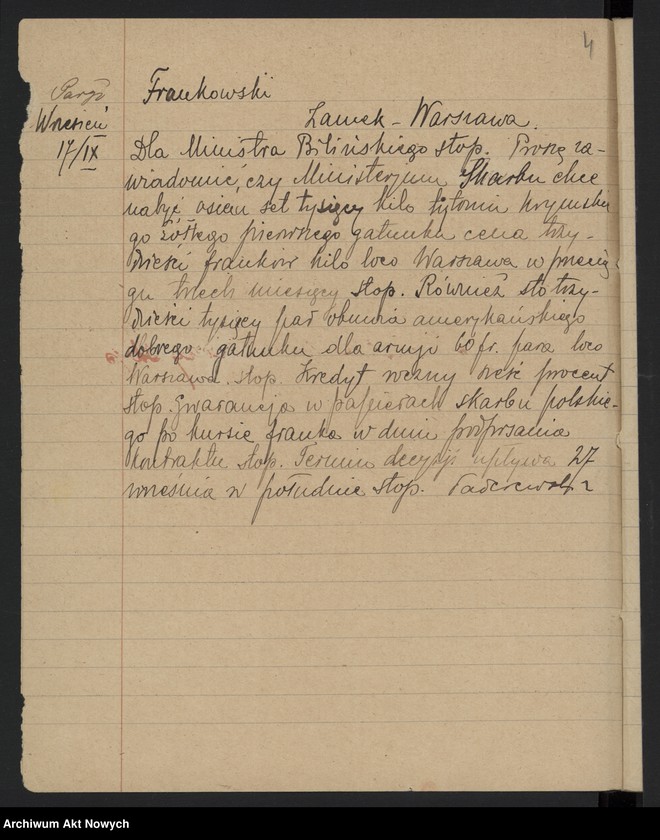 4
Paryż
Frankowski
Wrzesień
Zamek - Warszawa.
17/IX
Dla Ministra Bilińskiego stop. Proszę za-
wiadomić, czy Ministerjum Skarbu chce
nabyć osiem set tysięcy kilo tytoniu krymskie
go żółtego pierwszego gatunku cena trzy-
dzieści franków kilo loco Warszawa w przecią
gu trzech miesięcy stop. Również sto trzy-
dzieści tysięcy par obuwia amerykańskiego
dobrego gatunku dla armji 60 fr. para loco
Warszawa. stop. Kredyt roczny sześć procent
stop. Gwarancja w papierach skarbu polskie-
go po kursie franka w dniu podpisania
kontraktu stop. Termin decyzji upływa 27
września w południe stop. Paderewski
Archiwum Akt Nowych